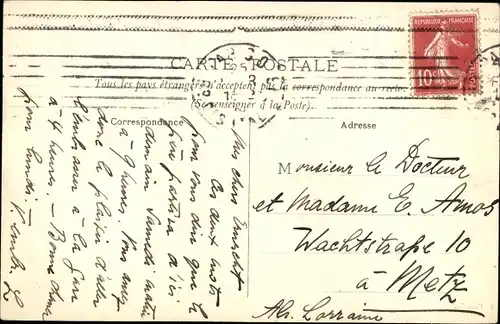 REPUBLIQUE FRANÇAISE
10
CARTE POSTALE
Tous les pays étrangers n'acceptent pas la correspondance au recto
(Se renseigner à la Poste).
Correspondance
Adresse
Mes chers
Ces deux mots
pour vous dire que le
demain Samedi matin
à 9 heures. Vous
donc le plaisir d'aller
à la gare
à 4 heures. - Bonne
pour lundi
Monsieur le Docteur
et Madame E. Amos
Wachtstraße 10
à Metz
Als. Lorraine